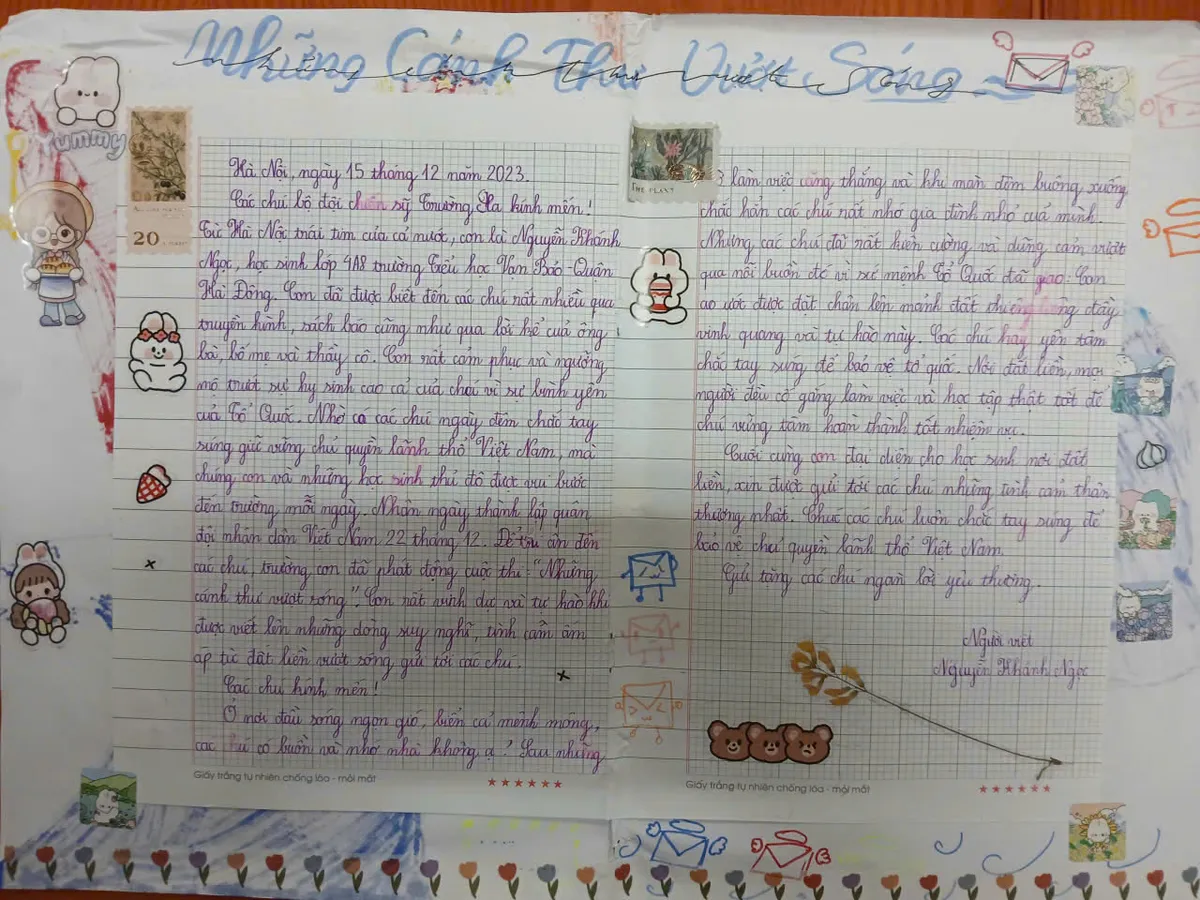 Những Cánh Thư Vượt Sóng
Yummy
20
THE PLANT
Hà Nội, ngày 15 tháng 12 năm 2023.
Các chú bộ đội chiến sỹ Trường Sa kính mến!
Từ Hà Nội trái tim của cả nước, con là Nguyễn Khánh
Ngọc, học sinh lớp 4A8 trường Tiểu học Vạn Bảo - Quận
Hà Đông. Con đã được biết đến các chú rất nhiều qua
truyền hình, sách báo cũng như qua lời kể của ông
bà, bố mẹ và thầy cô. Con rất cảm phục và ngưỡng
mộ trướt sự hy sinh cao cả của chú vì sự bình yên
của Tổ Quốc. Nhờ có các chú ngày đêm chắc tay
súng giữ vững chủ quyền lãnh thổ Việt Nam, mà
chúng con và những học sinh thủ đô được vui bước
đến trường mỗi ngày. Nhân ngày thành lập quân
đội nhân dân Việt Nam 22 tháng 12. Để tri ân đến
các chú, trường con đã phát động cuộc thi "Những
cánh thư vượt sóng". Con rất vinh dự và tự hào khi
được viết lên những dòng suy nghĩ, tình cảm ấm
áp từ đất liền vượt sóng gửi tới các chú.
Các chú kính mến!
Ở nơi đầu sóng ngọn gió, biển cả mênh mông,
các chú có buồn và nhớ nhà không ạ? Sau những
Giấy trắng tự nhiên chống lóa - mỏi mắt
làm việc căng thẳng và khi màn đêm buông xuống
chắc hẳn các chú rất nhớ gia đình nhỏ của mình.
Nhưng, các chú đã rất kiên cường và dũng cảm vượt
qua nỗi buồn đó vì sứ mệnh Tổ Quốc đã giao. Con
ao ước được đặt chân lên mảnh đất thiêng liêng đầy
vinh quang và tự hào này. Các chú hãy yên tâm
chắc tay súng để bảo vệ tổ quốc. Nơi đất liền, mọi
người đều cố gắng làm việc và học tập thật tốt để
chú vững tâm hoàn thành tốt nhiệm vụ.
Cuối cùng con đại diện cho học sinh nơi đất
liền, xin được gửi tới các chú những tình cảm thân
thương nhất. Chúc các chú luôn chắc tay súng để
bảo vệ chủ quyền lãnh thổ Việt Nam.
Gửi tặng các chú ngàn lời yêu thương.
Người viết
Nguyễn Khánh Ngọc
Giấy trắng tự nhiên chống lóa - mỏi mắt